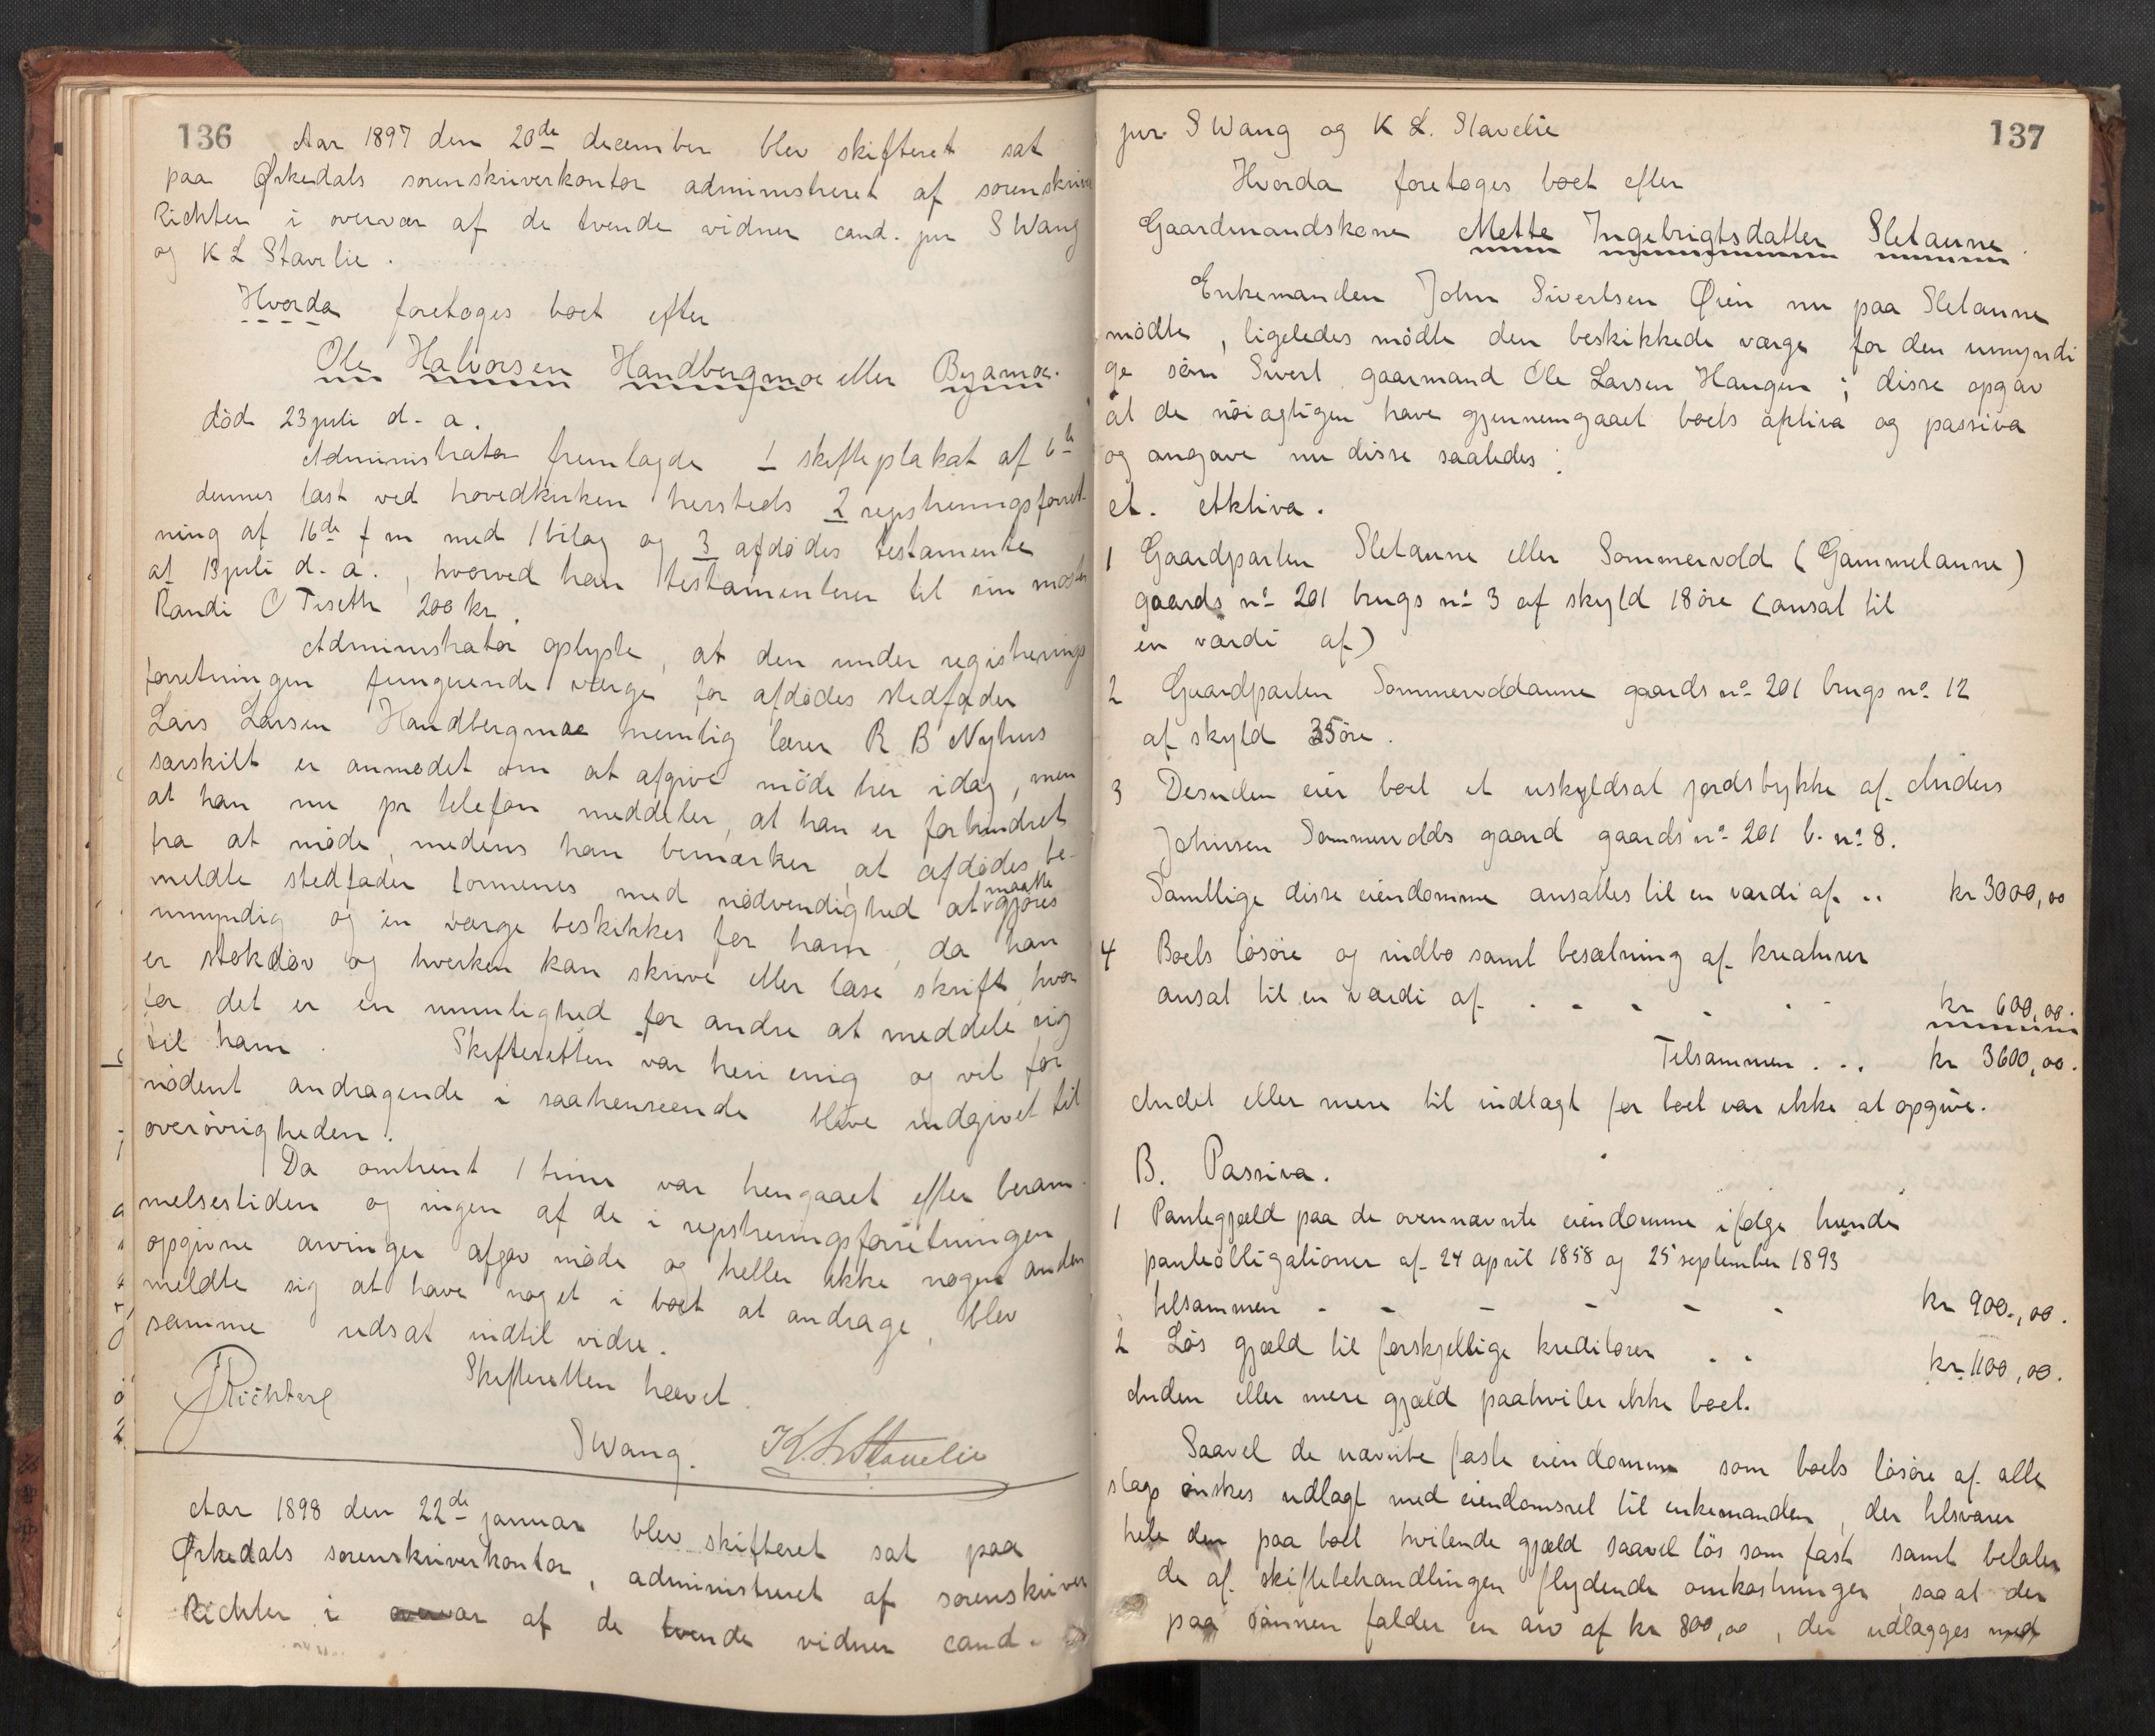 136
Aar 1897 den 20de december blev skifteret sat
paa Ørkedals sorenskriverkontor administreret af sorenskriver
Richter i overvær af de tvende vidner cand. jur S Wang
og K L Stavelie.
Hvorda foretoges boet efter
Ole Halvorsen Handbergmoe eller Byamoe.
død 23 juli d. a.
Administrator fremlagde 1 skifteplakat af 6te
dennes læst ved hovedkirken hersteds 2 registreringsforret-
ning af 16de f m med 1 bilag og 3 afdødes testamente
af 13 juli d. a., hvorved han testamenterer til sin moster
Randi O Tiseth 200 kr.
Administrator oplyste, at den under registrerings
forretningen fungerende værge for afdødes stedfader
Lars Larsen Handbergmoe nemlig lærer R B Nyhus
særskilt er anmodet om at afgive møde her idag, men
at han nu pr telefon meddeler, at han er forhindret
fra at møde, medens han bemærker, at afdødes be-
meldte stedfader formenes med nødvendighed at maatte gjøres
umyndig og en værge beskikkes for ham, da han
er stokdøv og hverken kan skrive eller læse skrift, hvor
for det er en umulighed for andre at meddele sig
til ham. Skifteretten var heri enig og vil for
nødent andragende i saahenseende blive indgivet til
overøvrigheden.
Da omtrent 1 time var hengaaet efter beram-
melsestiden og ingen af de i registreringsforretningen
opgivne arvinger afgav møde og heller ikke nogen anden
meldte sig at have noget i boet at andrage, blev
samme udsat indtil videre.
Skifteretten hævet.
Richter
S Wang. K. L. Stavelie
Aar 1898 den 22de januar blev skifteret sat paa
Ørkedals sorenskriverkontor, administreret af sorenskriver
Richter i overvær af de tvende vidner cand.
137
jur. S Wang og K L. Stavelie
Hvorda foretoges boet efter
Gaardmandskone Mette Ingebrigtsdatter Sletaune.
Enkemanden John Sivertsen Øien nu paa Sletaune
mødte, ligeledes mødte den beskikkede værge for den umyndi
ge søn Sivert gaarmand Ole Larsen Haugen; disse opgav
at de nøiagtigen have gjennemgaaet boets aktiva og passiva
og angave nu disse saaledes:
A. Aktiva.
1 Gaardparten Sletaune eller Sommervold (Gammelaune)
gaards no 201 brugs no 3 af skyld 18 øre (ansat til
en værdi af)
2 Gaardparten Sommervoldaune gaards no 201 brugs no 12
af skyld 35 øre.
3 Desuden eier boet et uskyldsat jordstykke af Anders
Johnsen Sommervolds gaard gaards no 201 b. no 8.
Samtlige disse eiendomme ansattes til en værdi af .. kr 3000,00
4 Boets løsøre og indbo samt besætning af kreaturer
ansat til en værdi af . . . . . . kr 600,00.
Tilsammen . . . kr 3600,00.
Andet eller mere til indtægt for boet var ikke at opgive.
B. Passiva.
1 Pantegjæld paa de ovennævnte eiendomme ifølge tvende
panteobligationer af 24 april 1858 og 25 september 1893
tilsammen - - - - - - kr 900,00.
2 Løs gjæld til forskjellige kreditorer . . kr 1100,00.
Anden eller mere gjæld paahviler ikke boet.
Saavel de nævnte faste eiendomme som boets løsøre af alle
slags ønskes udlagt med eiendomsret til enkemanden, der tilsvarer
hele den paa boet hvilende gjæld saavel løs som fast samt betaler
de af skiftebehandlingen flydende omkostninger, saa at der
paa sønnen falder en arv af kr 800,00, der udlægges med